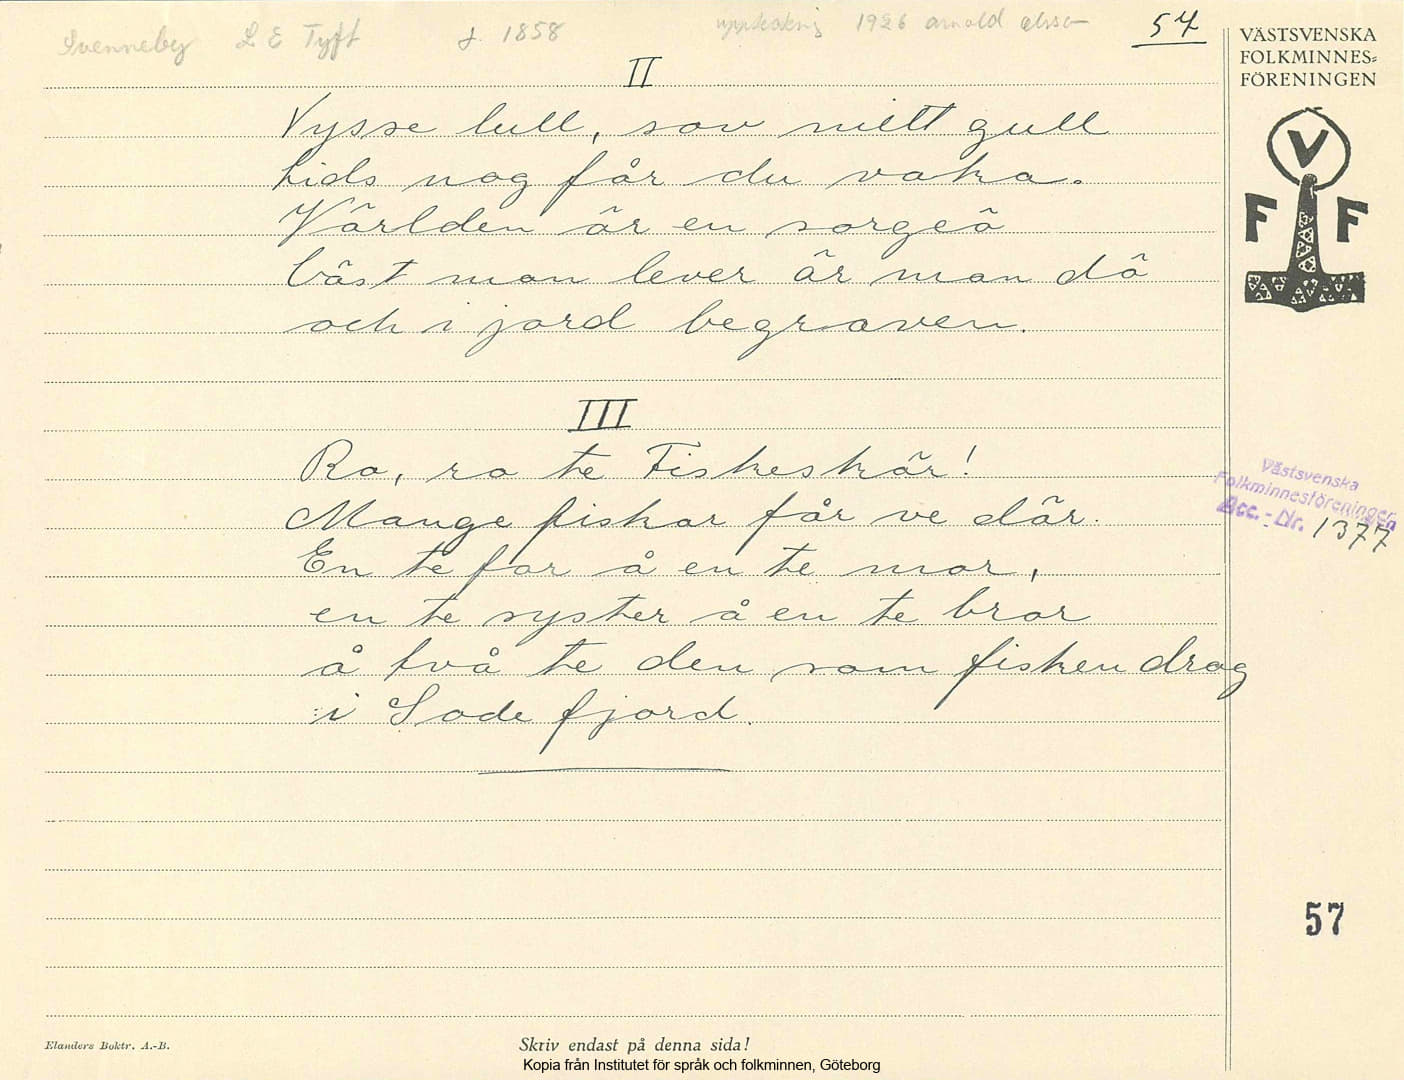 Svenneby L E Tyft f. 1858 uppteckning 1926 arnold olsson 57
VÄSTSVENSKA
FOLKMINNES=
FÖRENINGEN
V
F F
II
Vysse lull, sov mitt gull
tids nog får du vaka.
Världen är en sorgeö
bäst man lever är man dö
och i jord begraven.
III
Ro, ro te Fiskeskär!
Mange fiskar får ve där.
En te far å en te mor,
en te syster å en te bror
å två te den som fisken drog
i Sode fjord.
Västsvenska
Folkminnesföreningen
Acc.-Nr. 1377
57
Elanders Boktr. A.-B.
Skriv endast på denna sida!
Kopia från Institutet för språk och folkminnen, Göteborg